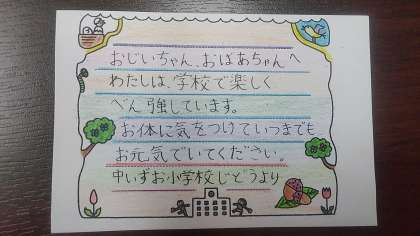 おじいちゃん、おばあちゃんへ
わたしは、学校で楽しく
べん強しています。
お体に気をつけていつまでも
お元気でいてください。
中いずお小学校じどうより